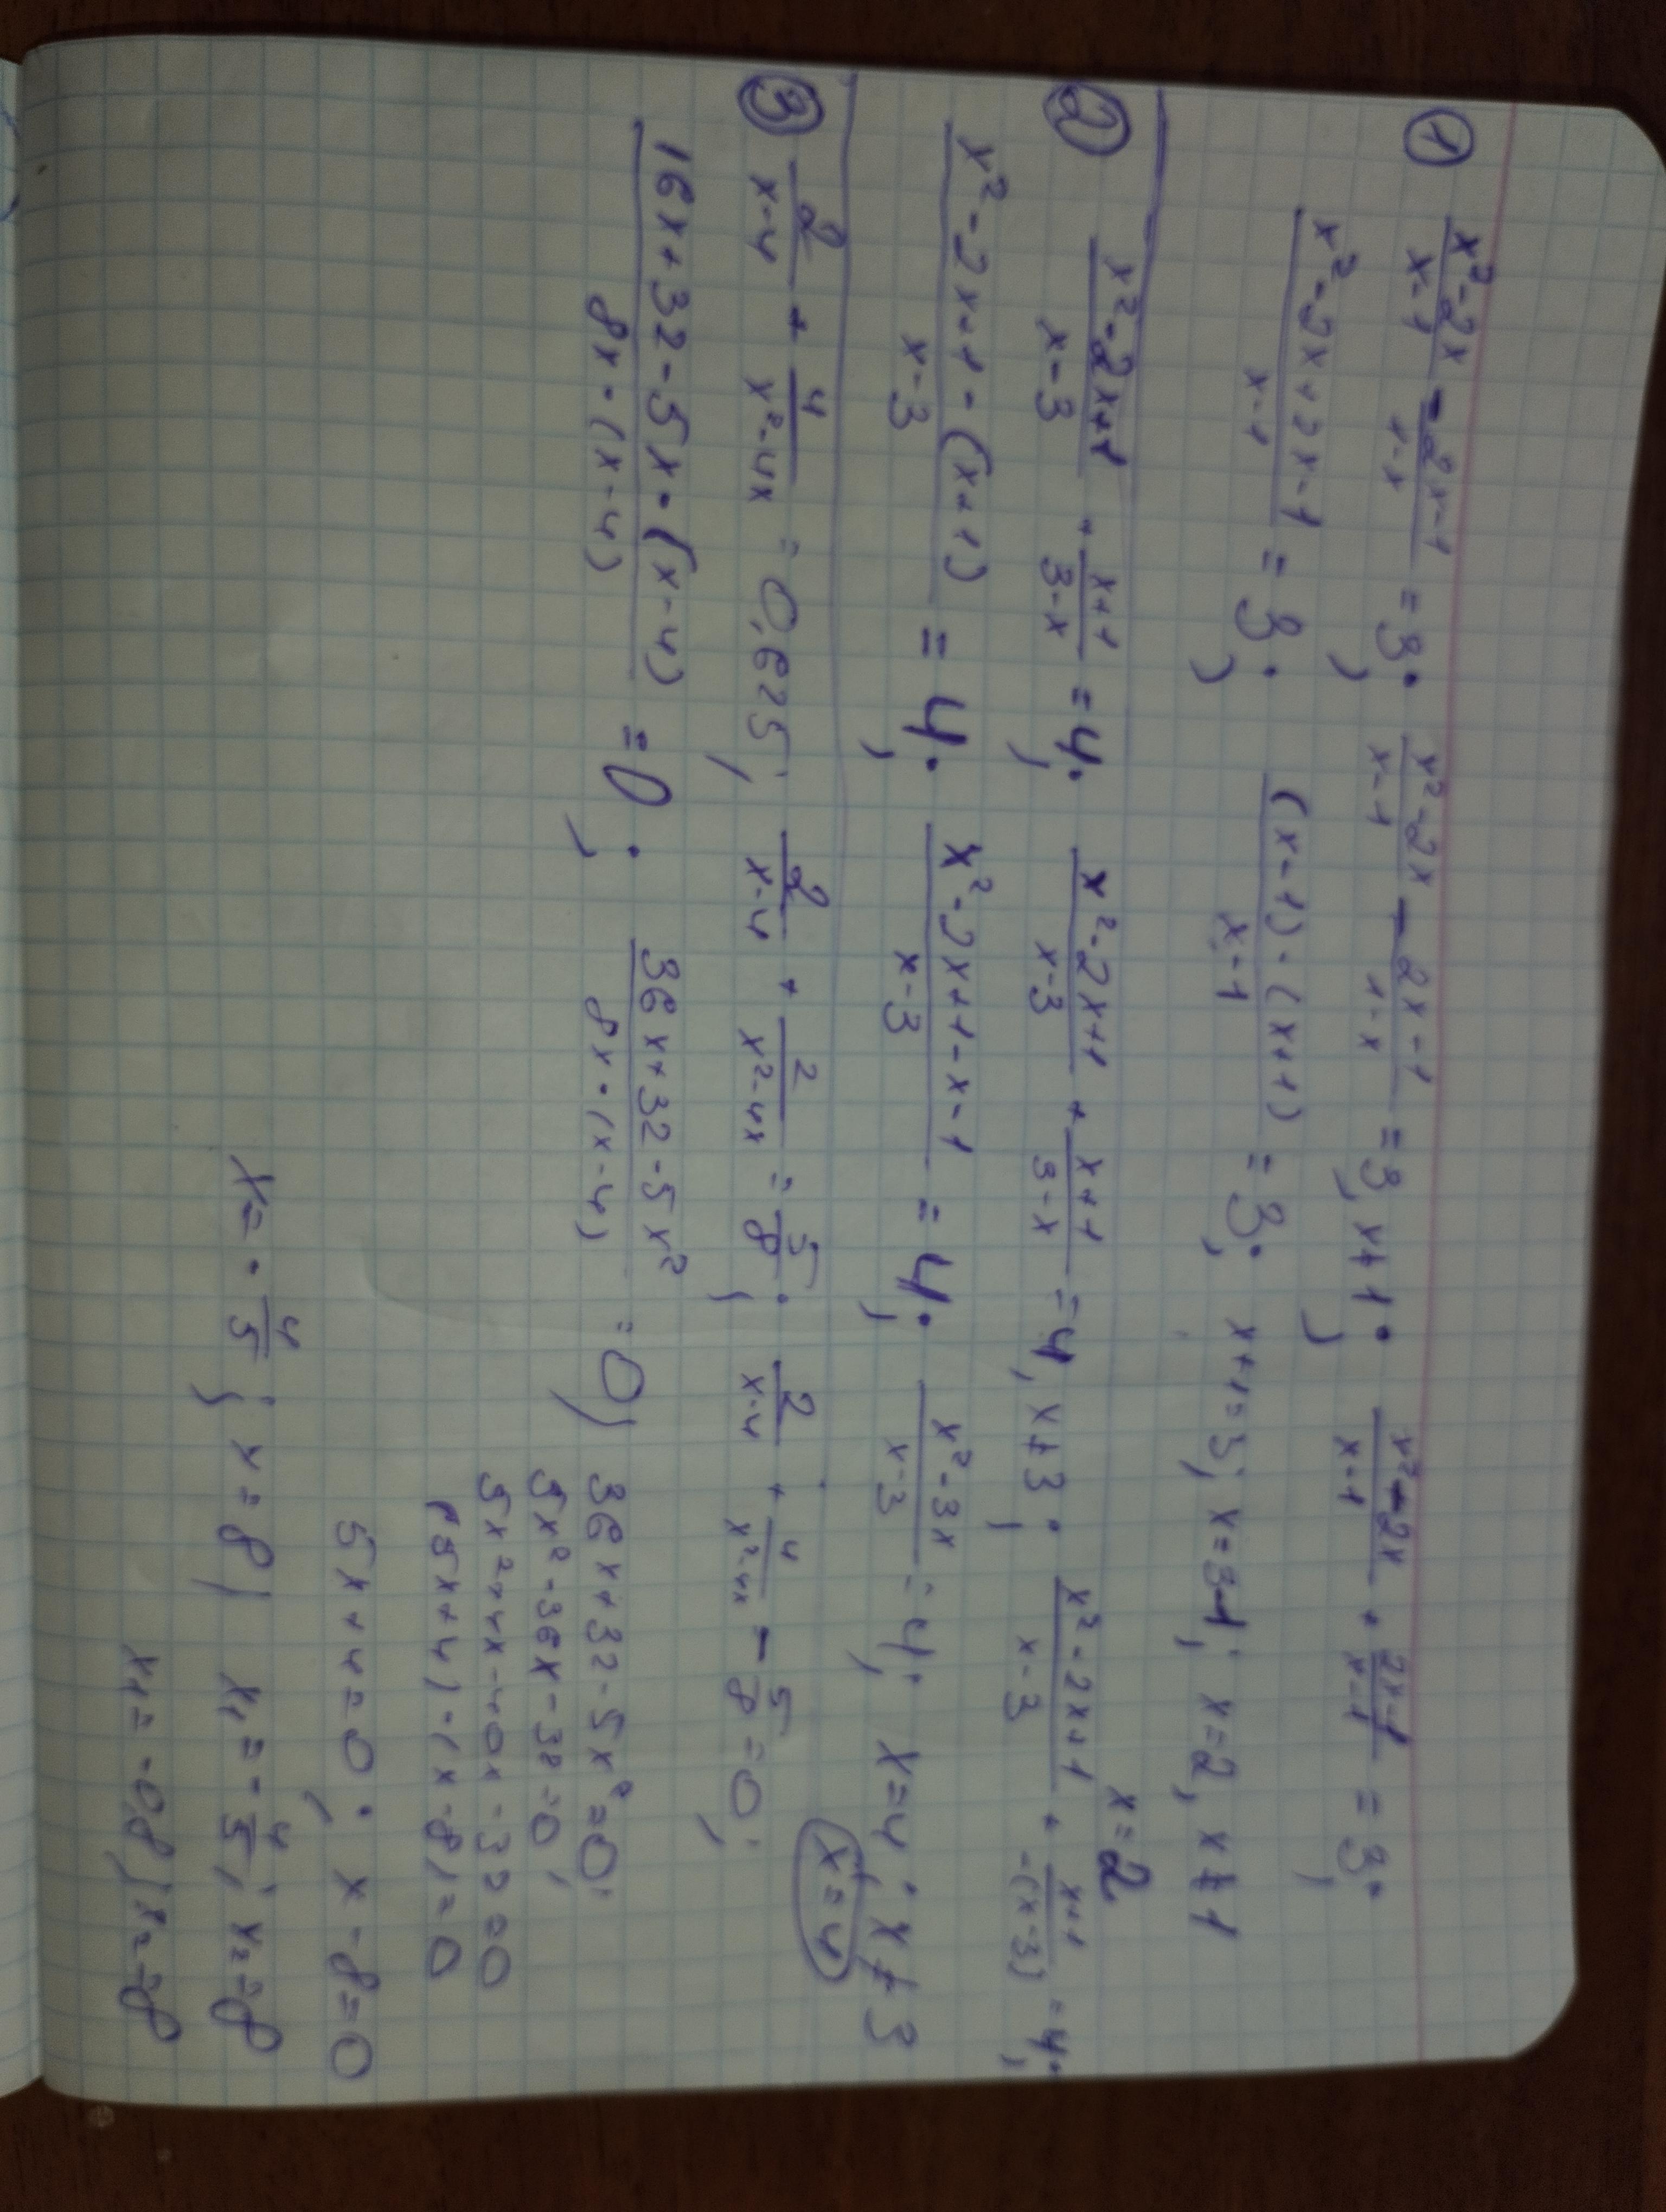 ① (x²-2x)/(x-1) - (2x-1)/(1-x) = 3; (x²-2x)/(x-1) - (2x-1)/(1-x) = 3, x≠1; (x²-2x)/(x-1) + (2x-1)/(x-1) = 3;
(x²-2x+2x-1)/(x-1) = 3; ((x-1)·(x+1))/(x-1) = 3; x+1=3; x=3-1; x=2, x≠1
x=2
② (x²-2x+1)/(x-3) + (x+1)/(3-x) = 4; (x²-2x+1)/(x-3) + (x+1)/(3-x) = 4, x≠3; (x²-2x+1)/(x-3) + (x+1)/(-(x-3)) = 4;
(x²-2x+1-(x+1))/(x-3) = 4; (x²-2x+1-x-1)/(x-3) = 4; (x²-3x)/(x-3) = 4; x=4; x≠3
x=4
③ 2/(x-4) + 4/(x²-4x) = 0,625; 2/(x-4) + 2/(x²-4x) = 5/8; 2/(x-4) + 4/(x²-4x) - 5/8 = 0;
(16x+32-5x·(x-4))/(8x·(x-4)) = 0; (36x+32-5x²)/(8x·(x-4)) = 0; 36x+32-5x²=0;
5x²-36x-32=0;
5x²+4x-40x-32=0
(5x+4)·(x-8)=0
5x+4=0; x-8=0
x=-4/5; x=8; x₁=-4/5; x₂=8
x₁=-0,8; x₂=8